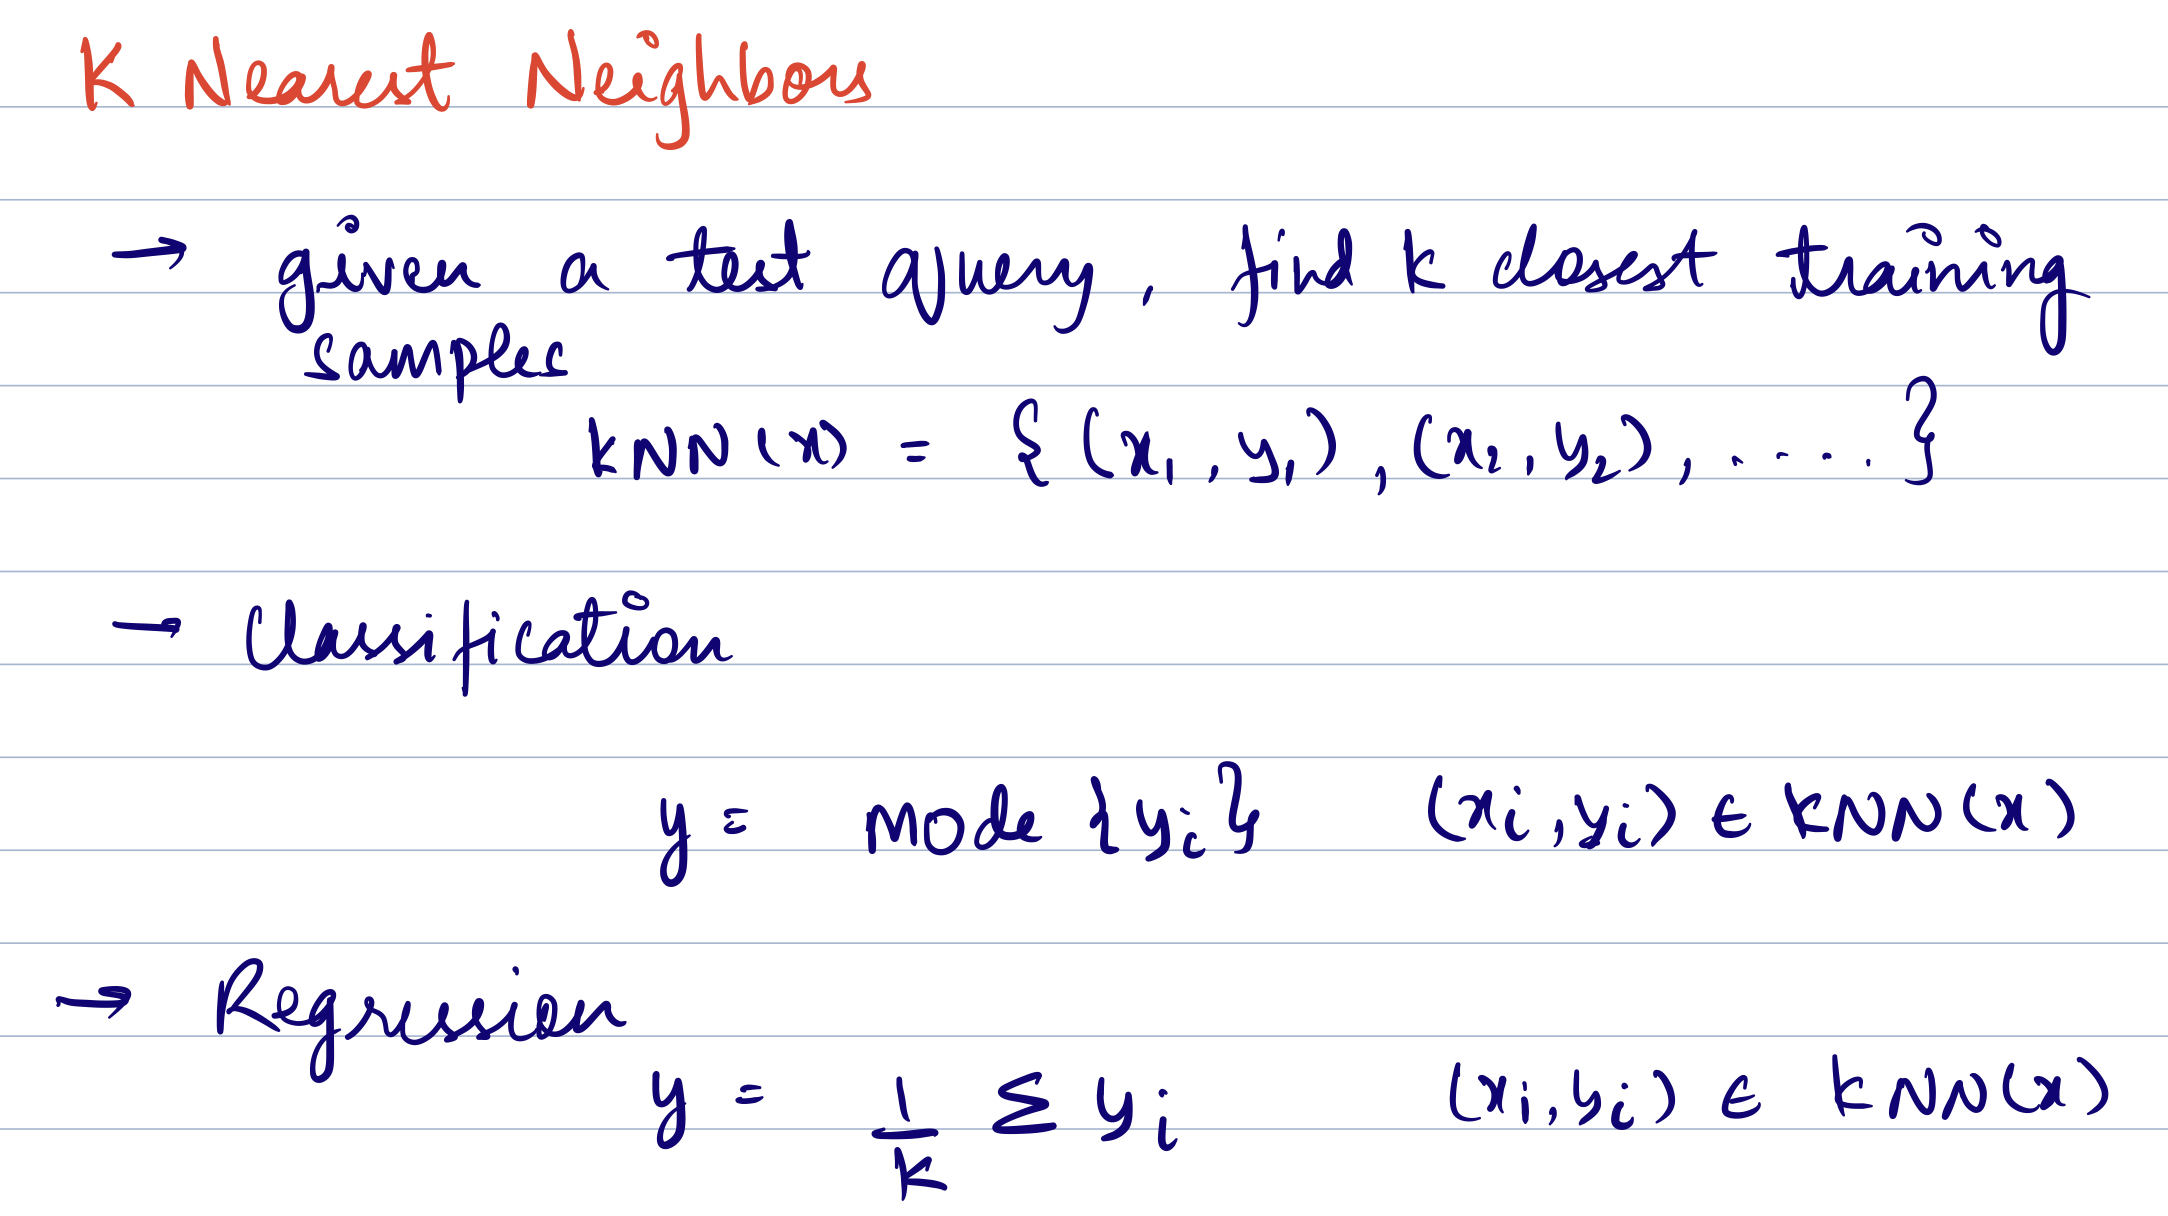 K Nearest Neighbors
→ given a test query, find k closest training
samples
kNN(x) = {(x₁, y₁), (x₂, y₂), ....}
→ Classification
y = mode {yᵢ} (xᵢ, yᵢ) ∈ kNN(x)
→ Regression
y = 1/k Σ yᵢ (xᵢ, yᵢ) ∈ kNN(x)